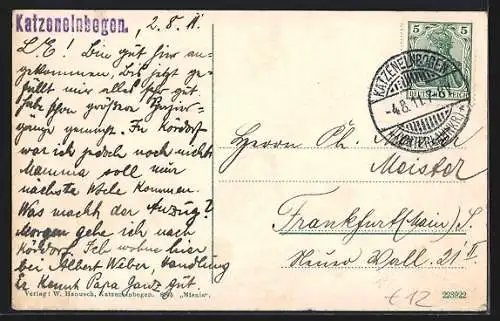 Katzenelnbogen.
2. 8. 11.
L. E! Bin gut hier an-
gekommen, bis jetzt ge-
fällt mir alles sehr gut.
Habe schon größere Spazier-
gänge gemacht. In Kördorf
war ich jedoch noch nicht.
Mamma soll nur
nächste Woche kommen.
Was macht der Anzug?
Morgen gehe ich nach
Kördorf. Ich wohne hier
bei Albert Weber, Handlung
Er kennt Papa ganz gut.
Verlag: W. Hanusch, Katzenelnbogen.
223922
5 5
DEUTSCHES REICH
KATZENELNBOGEN
-4.8.11.
(UNTERLAHNKR.)
Herrn Ph.
Meister
Frankfurt (Main) S
Neuer Wall. 21 II
€12